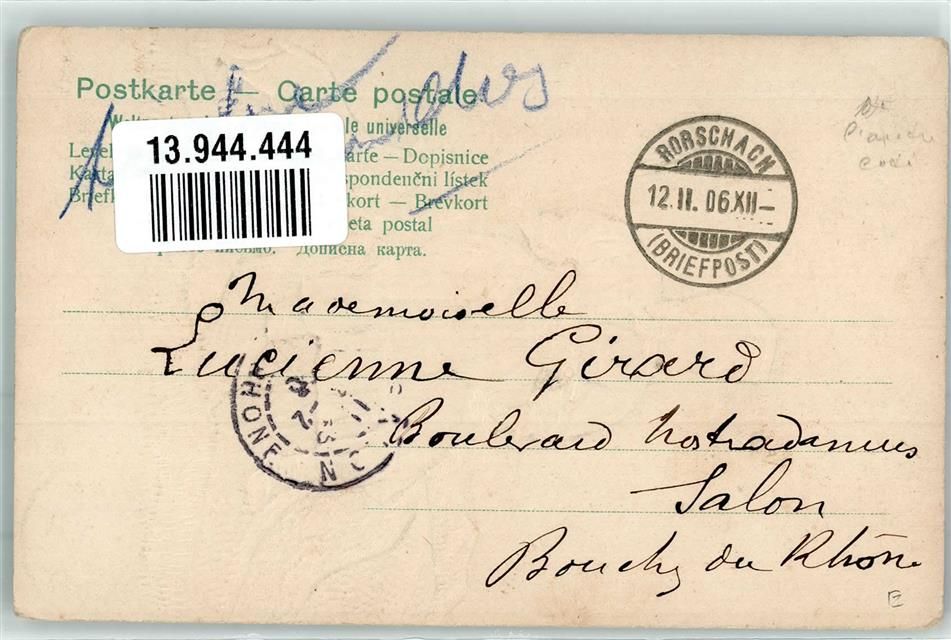 Postkarte — Carte postale
le universelle
Leve karte — Dopisnice
Karta spondenčni lístek
Briefk kort — Brevkort
eta postal
письмо. Дописна карта.
13.944.444
RORSCHACH
12.II.06.XII–
(BRIEFPOST)
Mademoiselle
Lucienne Girard
Boulevard Nostradamus
Salon
Bouch du Rhône
RHONE
E